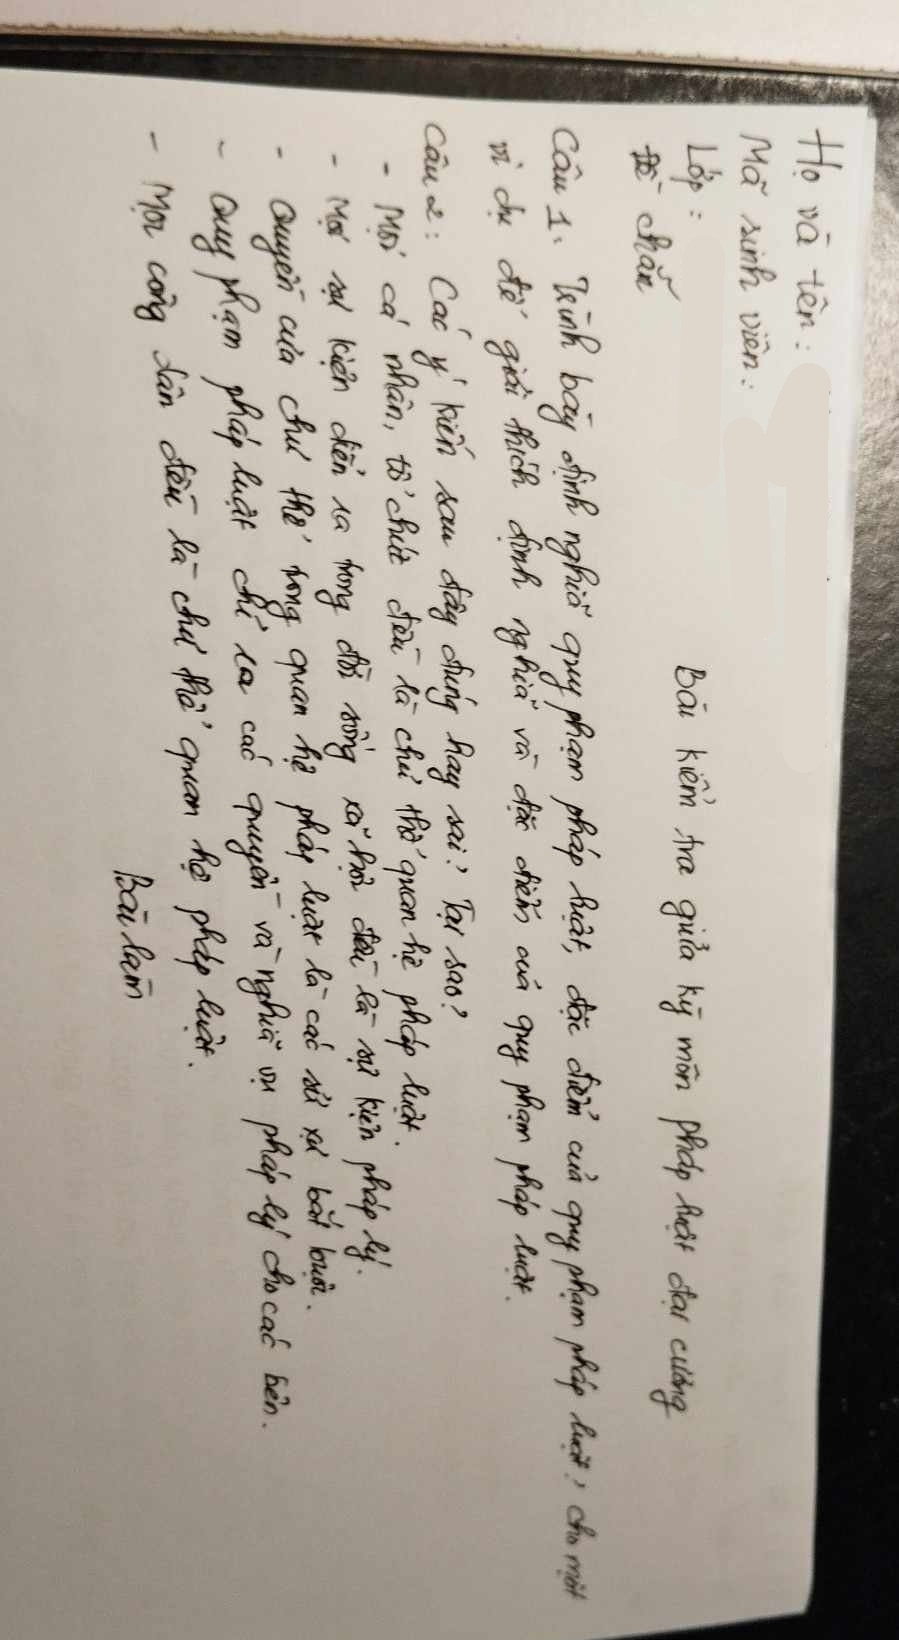 Họ và tên:
Mã sinh viên:
Lớp:
Đề chẵn
Bài kiểm tra giữa kỳ môn pháp luật đại cương
Câu 1: Trình bày định nghĩa quy phạm pháp luật, đặc điểm của quy phạm pháp luật? cho một
ví dụ để giải thích định nghĩa và đặc điểm của quy phạm pháp luật.
Câu 2: Các ý kiến sau đây đúng hay sai? Tại sao?
- Mọi cá nhân, tổ chức đều là chủ thể quan hệ pháp luật.
- Mọi sự kiện diễn ra trong đời sống xã hội đều là sự kiện pháp lý.
- Quyền của chủ thể trong quan hệ pháp luật là các sử xự bắt buộc.
- Quy phạm pháp luật chỉ ra các quyền và nghĩa vụ pháp lý cho các bên.
- Mọi công dân đều là chủ thể quan hệ pháp luật.
Bài làm